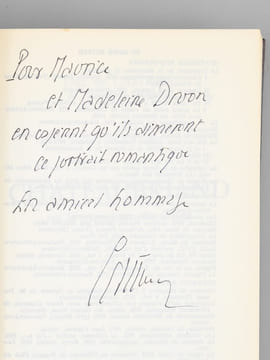 Pour Maurice
et Madeleine Druon
en espérant qu'ils aimeront
ce portrait romantique
En amical hommage